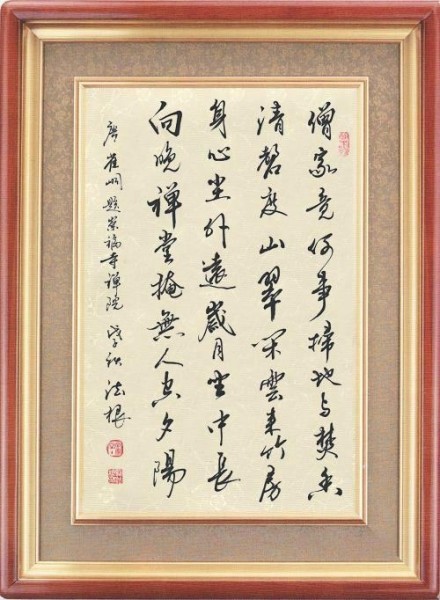 僧家竟何事掃地与焚香
清磬度山翠閒雲来竹房
身心尘外遠歲月坐中長
向晚禅堂掩無人空夕陽
唐崔峒題崇福寺禅院 戊子秋 法根